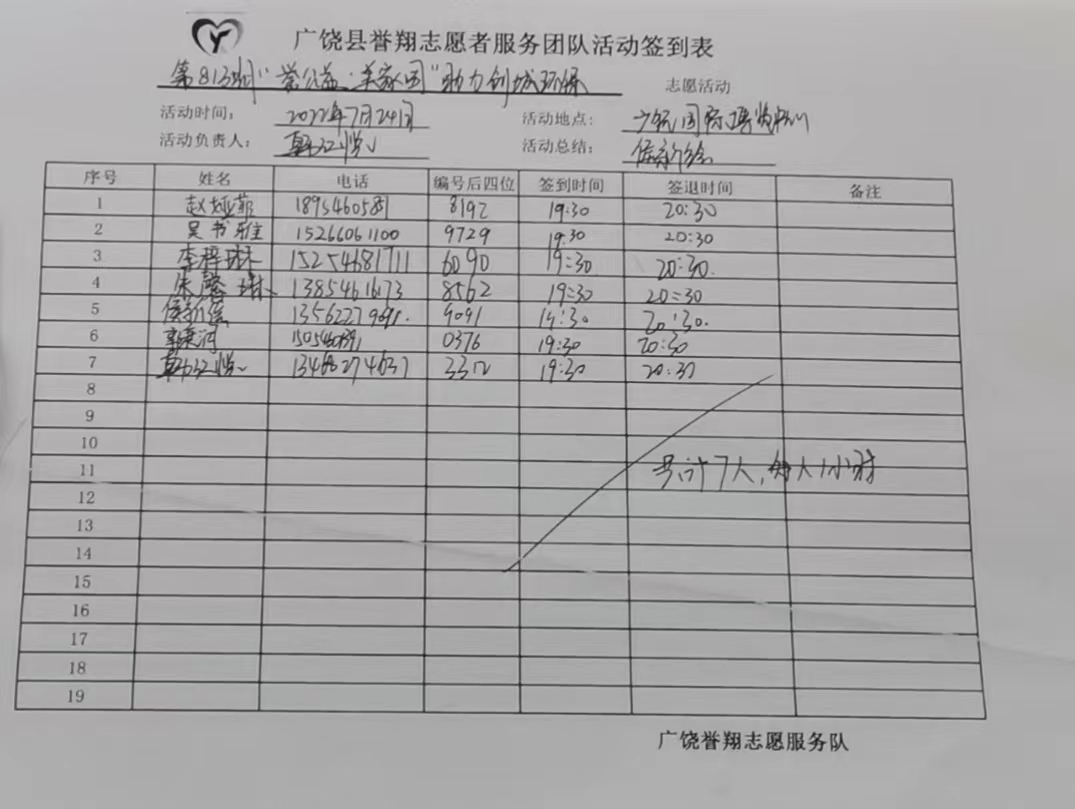 广饶县誉翔志愿者服务团队活动签到表
第813期"誉公益·美家园"助力创城环保 志愿活动
活动时间: 2022年7月24日 活动地点: 广饶国际博览中心
活动负责人: 活动总结: 侯新绘
序号 姓名 电话 编号后四位 签到时间 签退时间 备注
1 赵娅菲 1895460581 8192 19:30 20:30
2 吴书雅 15266061100 9729 19:30 20:30
3 李梓琳 15254681711 6090 19:30 20:30
4 朱馨琳 13854616173 8562 19:30 20:30
5 侯新绘 9091 19:30 20:30
6 0376 19:30 20:30
7 13468274637 3312 19:30 20:30
8
9
10
11 共计7人,每人1小时
12
13
14
15
16
17
18
19
广饶誉翔志愿服务队